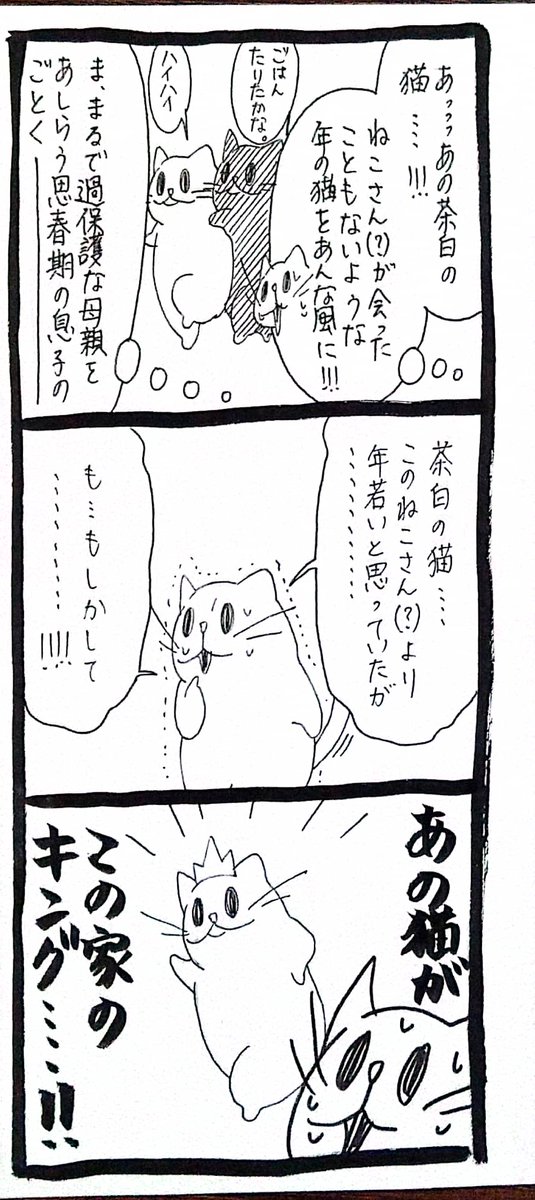 あっっっあの茶白の
猫……!!!
ねこさん(?)が会った
こともないような
年の猫をあんな風に!!!
ごはん
たりたかな。
ハイハイ
ま、まるで過保護な母親を
あしらう思春期の息子の
ごとく――――
茶白の猫……
このねこさん(?)より
年若いと思っていたが
…………
も…もしかして
…………!!!!
あの猫が
この家の
キング……!!